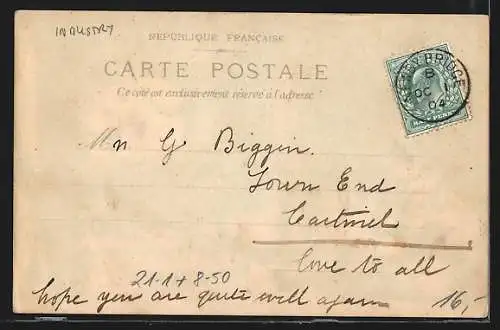 INDUSTRY
REPUBLIQUE FRANÇAISE
CARTE POSTALE
Ce côté est exclusivement réservé à l'adresse
BRIDGE
B
OC
04
G Biggin
Town End
Cartmel
love to all
21-1+8-50
hope you are quite well again
16,-